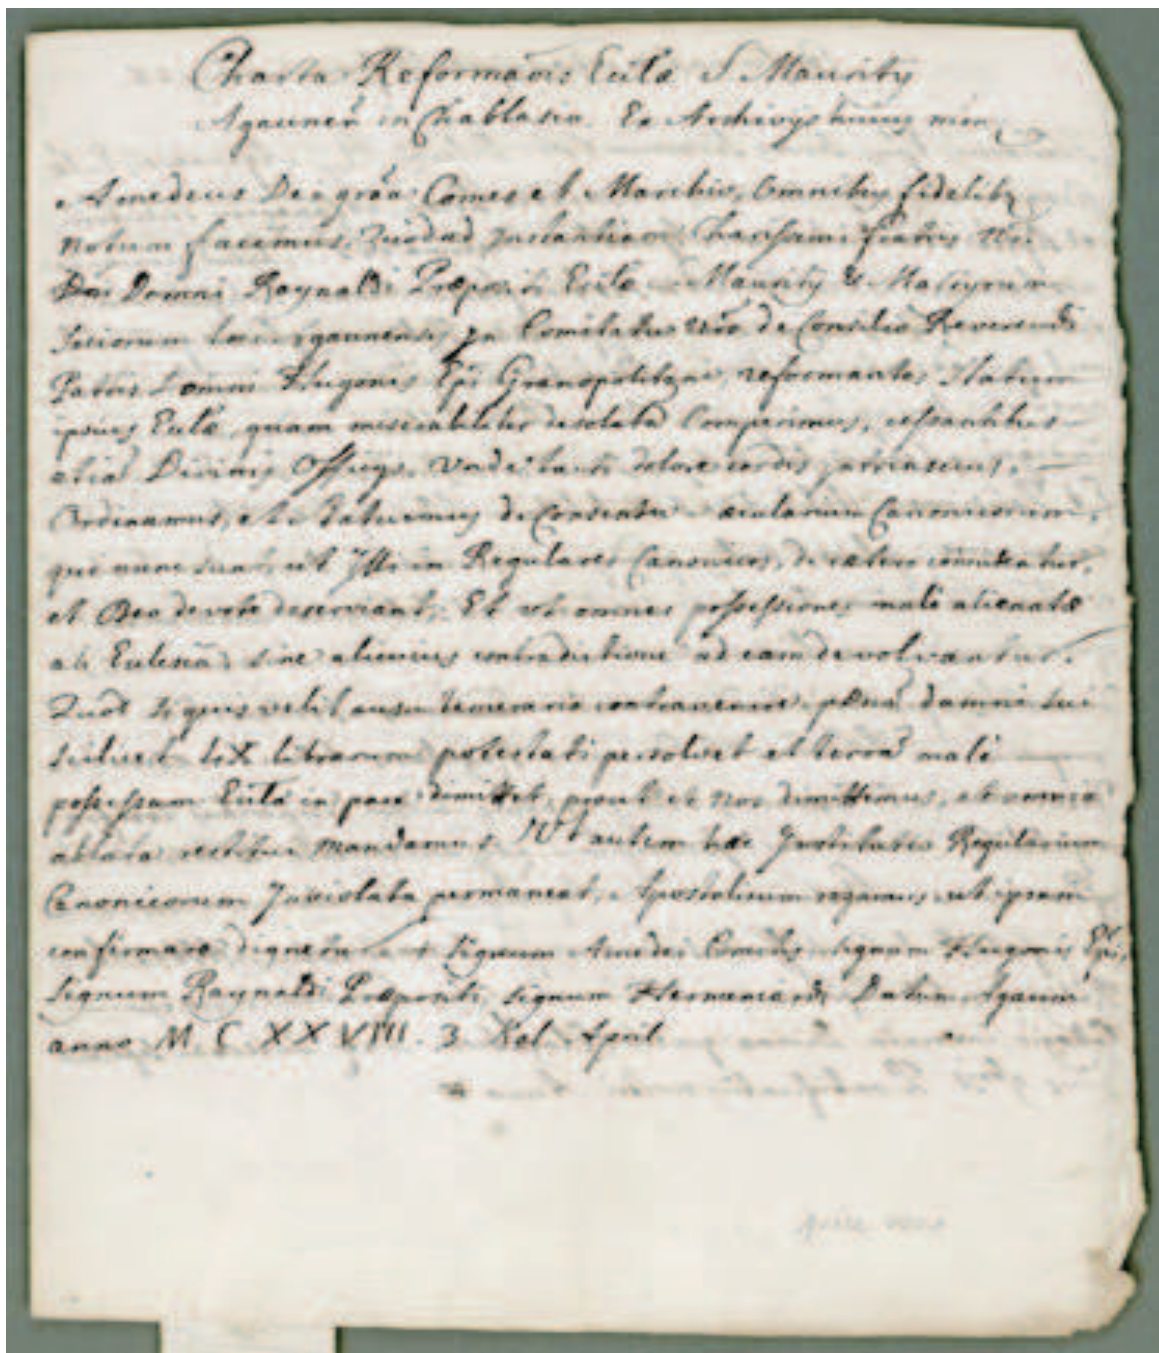 Charta Reformaōis Eccłæ S Mauritij
Agaunen̄ in Chablasio. Ex Archivijs
Amedeus Dei grāa Comes et Marchio, Omnibus fidelibꝫ
notum facimus, quod ad Instantiam Charissimi fratris
Domni Raynaldi Præpositi Eccłæ S Mauritij & Martyrum
Sociorum
Patris Domni Hugonis Epi Granopolitani, reformantes Statum
ipsius Eccłæ, quam miserabiliter desolatā Comperimus, cessantibus
etiā Divinis Officijs, Unde tacti dolore cordis
Ordinamus, et statuimus de Consensu Canonicorum,
qui nunc sunt, ut Regulares Canonicos, de cætero
et Deo devote deserviant, Et ut omnes possessiones malè alienatæ
ab Ecclesiā, sine alicuius contradictione ad eam devolvantur.
Quod si quis velit ausu temerario contravenire, pœnā damni sui
Scilicet LX librarum potestati persolvet et terrā malè
possessam Eccłæ in pace dimittet, prout et nos dimittimus, et omnia
ablata restitui mandamus. Ut autem hæc Institutio Regularium
Canonicorum Inviolata permaneat, Apostolicum rogamus, ut ipsam
confirmare dignetur Signum Amedei Comitis signum Hugonis Epi,
Signum Raynaldi Præpositi, signum Datum Agauni
anno M. C. XXVIII. 3 Kal. April